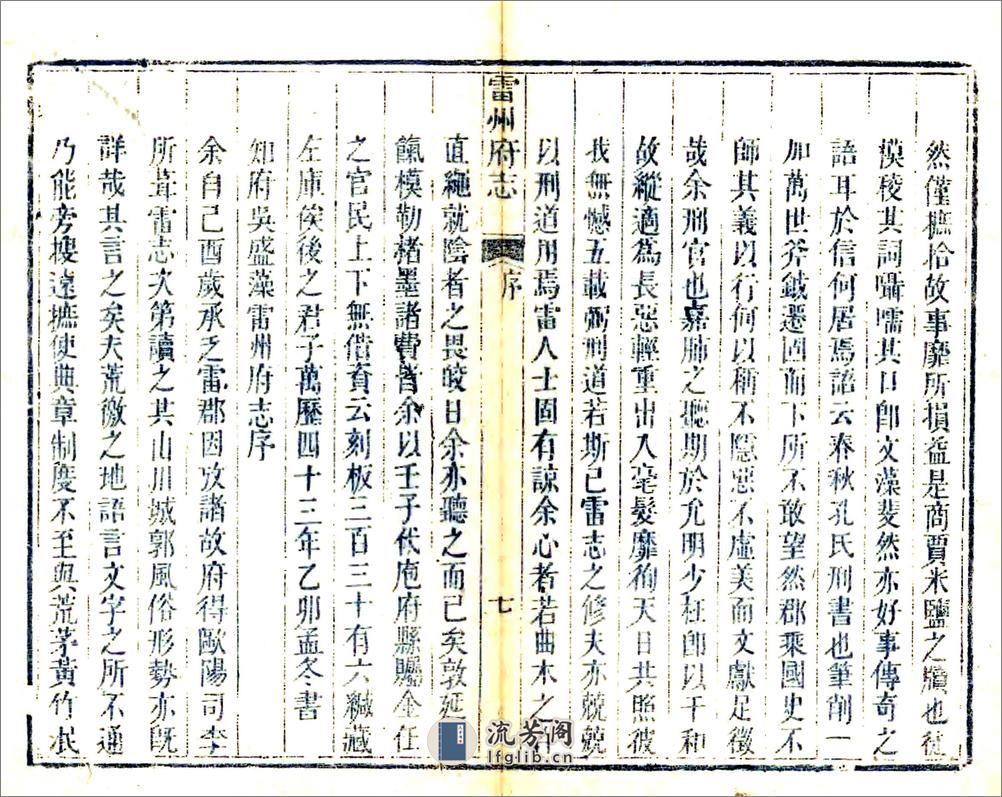 然僅摭拾故事靡所損益是商賈米鹽之牘也徒
模稜其詞囁嚅其口卽文藻斐然亦好事傳奇之
語耳於信何居焉諺云春秋孔氏刑書也筆削一
加萬世斧鉞遷固而下所不敢望然郡乘國史不
師其義以行何以稱不隱惡不虛美而文獻足徵
哉余刑官也嘉肺之聽期於允明少枉卽以干和
故縱適爲長惡輕重出入毫髮靡徇天日共照彼
我無憾五載弼刑道若斯已雷志之修夫亦兢兢
以刑道用焉雷人士固有諒余心者若曲木之
雷州府志
序
七
直繩就陰者之畏皎日余亦聽之而已矣敦延
餼模勒楮墨諸費皆余以壬子代庖府縣贖金任
之官民上下無借資云刻板三百三十有六緘藏
左庫俟後之君子萬歷四十三年乙卯孟冬書
知府吳盛藻雷州府志序
余自己酉歲承乏雷郡因攷諸故府得歐陽司李
所葺雷志次第讀之其山川城郭風俗形勢亦旣
詳哉其言之矣夫荒徼之地語言文字之所不通
乃能旁搜遠摭使典章制度不至與荒茅黃竹泯
流芳阁
lfglib.cn